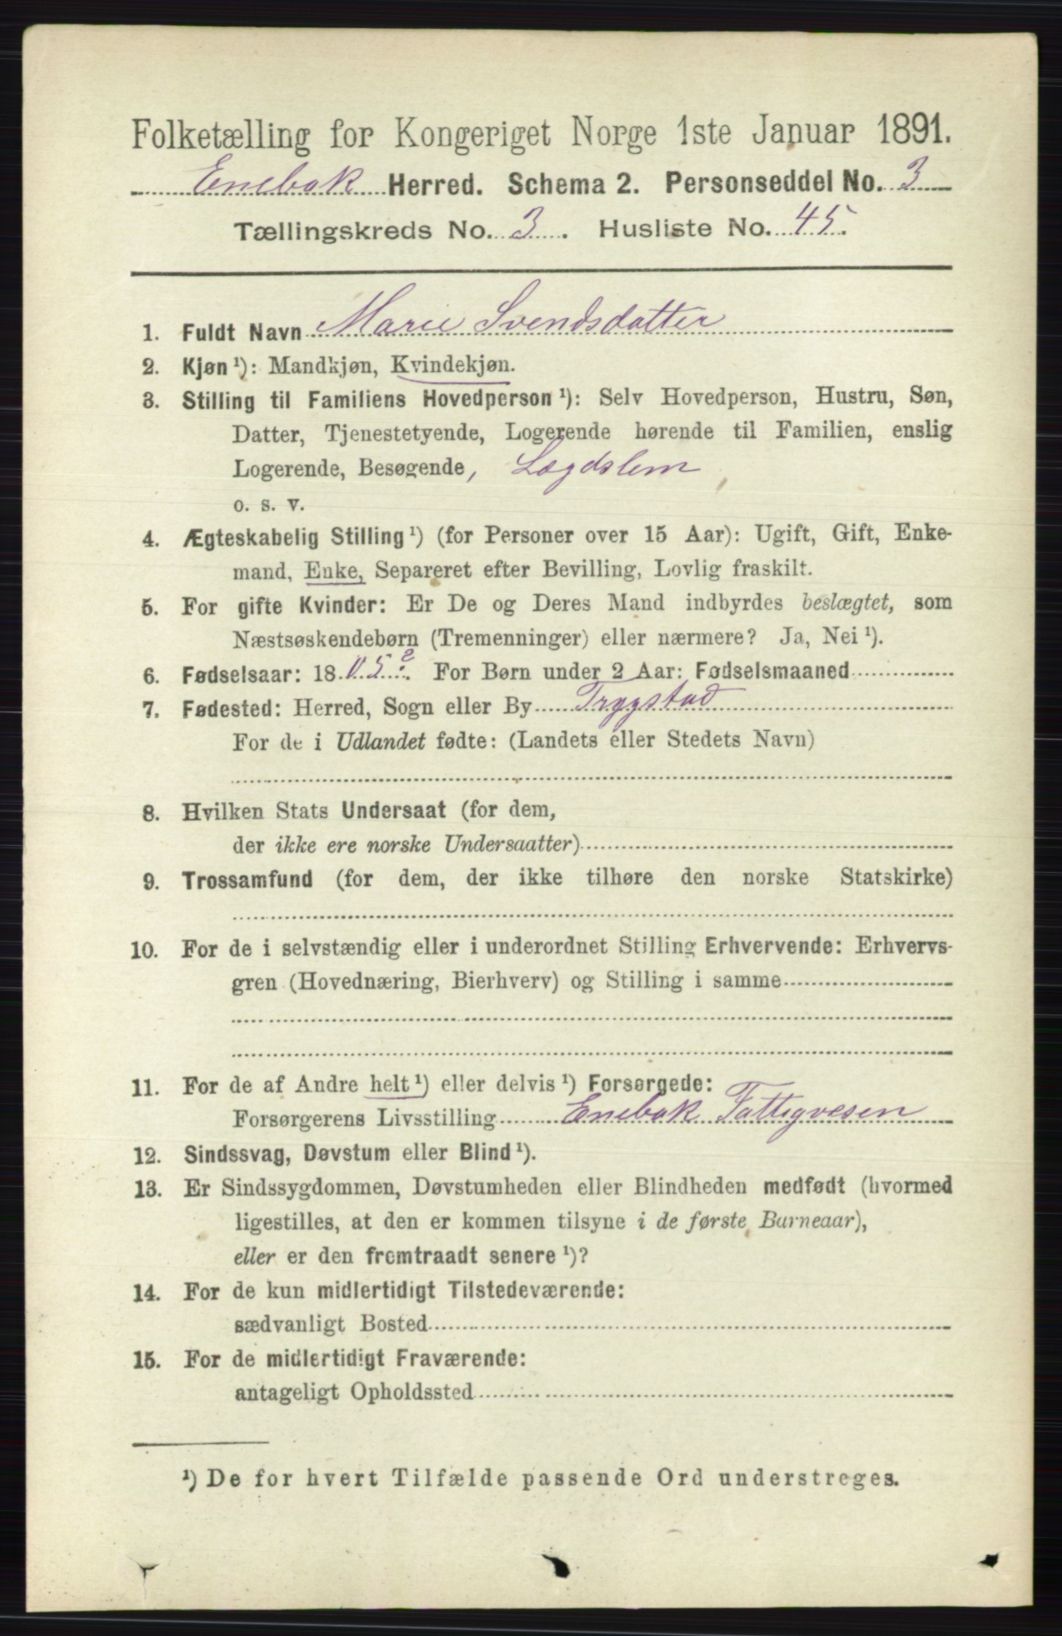 Folketælling for Kongeriget Norge 1ste Januar 1891.
Enebak Herred. Schema 2. Personseddel No. 3
Tællingskreds No. 3. Husliste No. 45.
1. Fuldt Navn Marie Svendsdatter
2. Kjøn ¹): Mandkjøn, Kvindekjøn.
3. Stilling til Familiens Hovedperson ¹): Selv Hovedperson, Hustru, Søn,
Datter, Tjenestetyende, Logerende hørende til Familien, enslig
Logerende, Besøgende, Lægdslem
o. s. v.
4. Ægteskabelig Stilling ¹) (for Personer over 15 Aar): Ugift, Gift, Enke-
mand, Enke, Separeret efter Bevilling, Lovlig fraskilt.
5. For gifte Kvinder: Er De og Deres Mand indbyrdes beslægtet, som
Næstsøskendebørn (Tremenninger) eller nærmere? Ja, Nei ¹).
6. Fødselsaar: 1805 ? For Børn under 2 Aar: Fødselsmaaned
7. Fødested: Herred, Sogn eller By Trygstad
For de i Udlandet fødte: (Landets eller Stedets Navn)
8. Hvilken Stats Undersaat (for dem,
der ikke ere norske Undersaatter)
9. Trossamfund (for dem, der ikke tilhøre den norske Statskirke)
10. For de i selvstændig eller i underordnet Stilling Erhvervende: Erhvervs-
gren (Hovednæring, Bierhverv) og Stilling i samme
11. For de af Andre helt ¹) eller delvis ¹) Forsørgede:
Forsørgerens Livsstilling Enebak Fattigvesen
12. Sindssvag, Døvstum eller Blind ¹).
13. Er Sindssygdommen, Døvstumheden eller Blindheden medfødt (hvormed
ligestilles, at den er kommen tilsyne i de første Barneaar),
eller er den fremtraadt senere ¹)?
14. For de kun midlertidigt Tilstedeværende:
sædvanligt Bosted
15. For de midlertidigt Fraværende:
antageligt Opholdssted
¹) De for hvert Tilfælde passende Ord understreges.